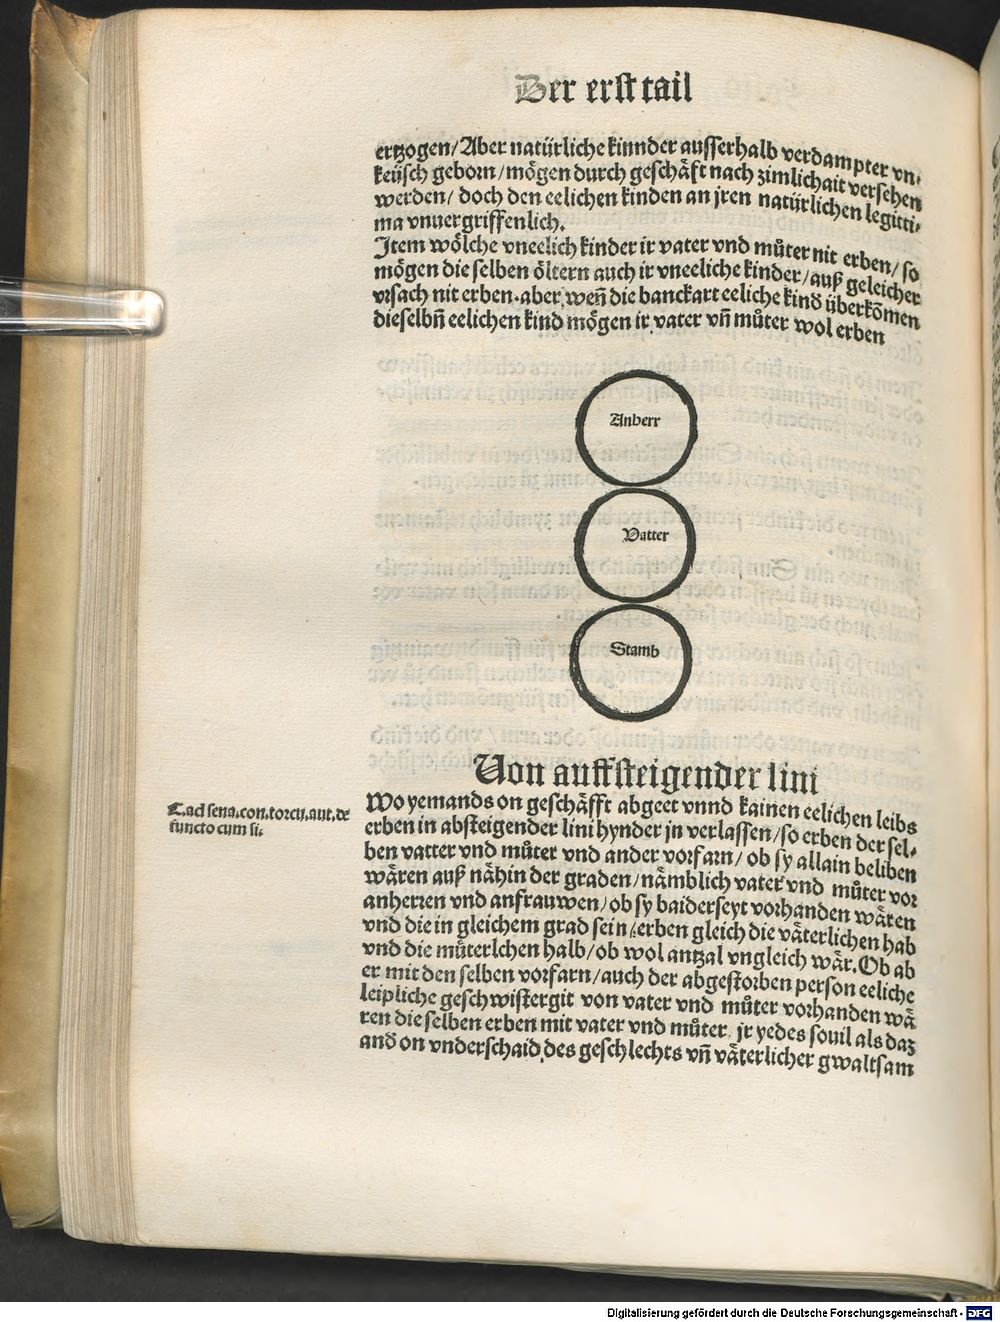 Der erst tail
ertzogen/ Aber natürliche kinnder ausserhalb verdampter vn,
keüsch geborn/ mögen durch geschäft nach zimlichait versehen
werden/ doch den eelichen kinden an jren natürlichen legitti,
ma vnuergriffenlich.
Item wölche vneelich kinder ir vater vnd můter nit erben/ so
mögen die selben öltern auch ir vneeliche kinder/ auß geleicher
vrsach nit erben. aber, weñ die banckart eeliche kind überkõmen
dieselbñ eelichen kind mögen ir vater vñ můter wol erben
Anherr
Vatter
Stamb
Von auffsteigender lini
C. ad sena. con. torcu. aut. de
functo cum si.
Wo yemands on geschäfft abgeet vnnd kainen eelichen leibs
erben in absteigender lini hynder jn verlassen/ so erben der sel,
ben vatter vnd můter vnd ander vorfarn/ ob sy allain beliben
wären auß nähin der graden/ nämblich vater vnd můter vor
anherren vnd anfrauwen/ ob sy baiderseyt vorhanden wären
vnd die in gleichem grad sein/ erben gleich die väterlichen hab
vnd die můterlchen halb/ ob wol antzal vngleich wär. Ob ab
er mit den selben vorfarn/ auch der abgestorben person eeliche
leipliche geschwistergit von vater vnd můter vorhanden wä
ren die selben erben mit vater vnd můter jr yedes souil als daz
and on vnderschaid des geschlechts vñ väterlicher gwaltsam
Digitalisierung gefördert durch die Deutsche Forschungsgemeinschaft - DFG